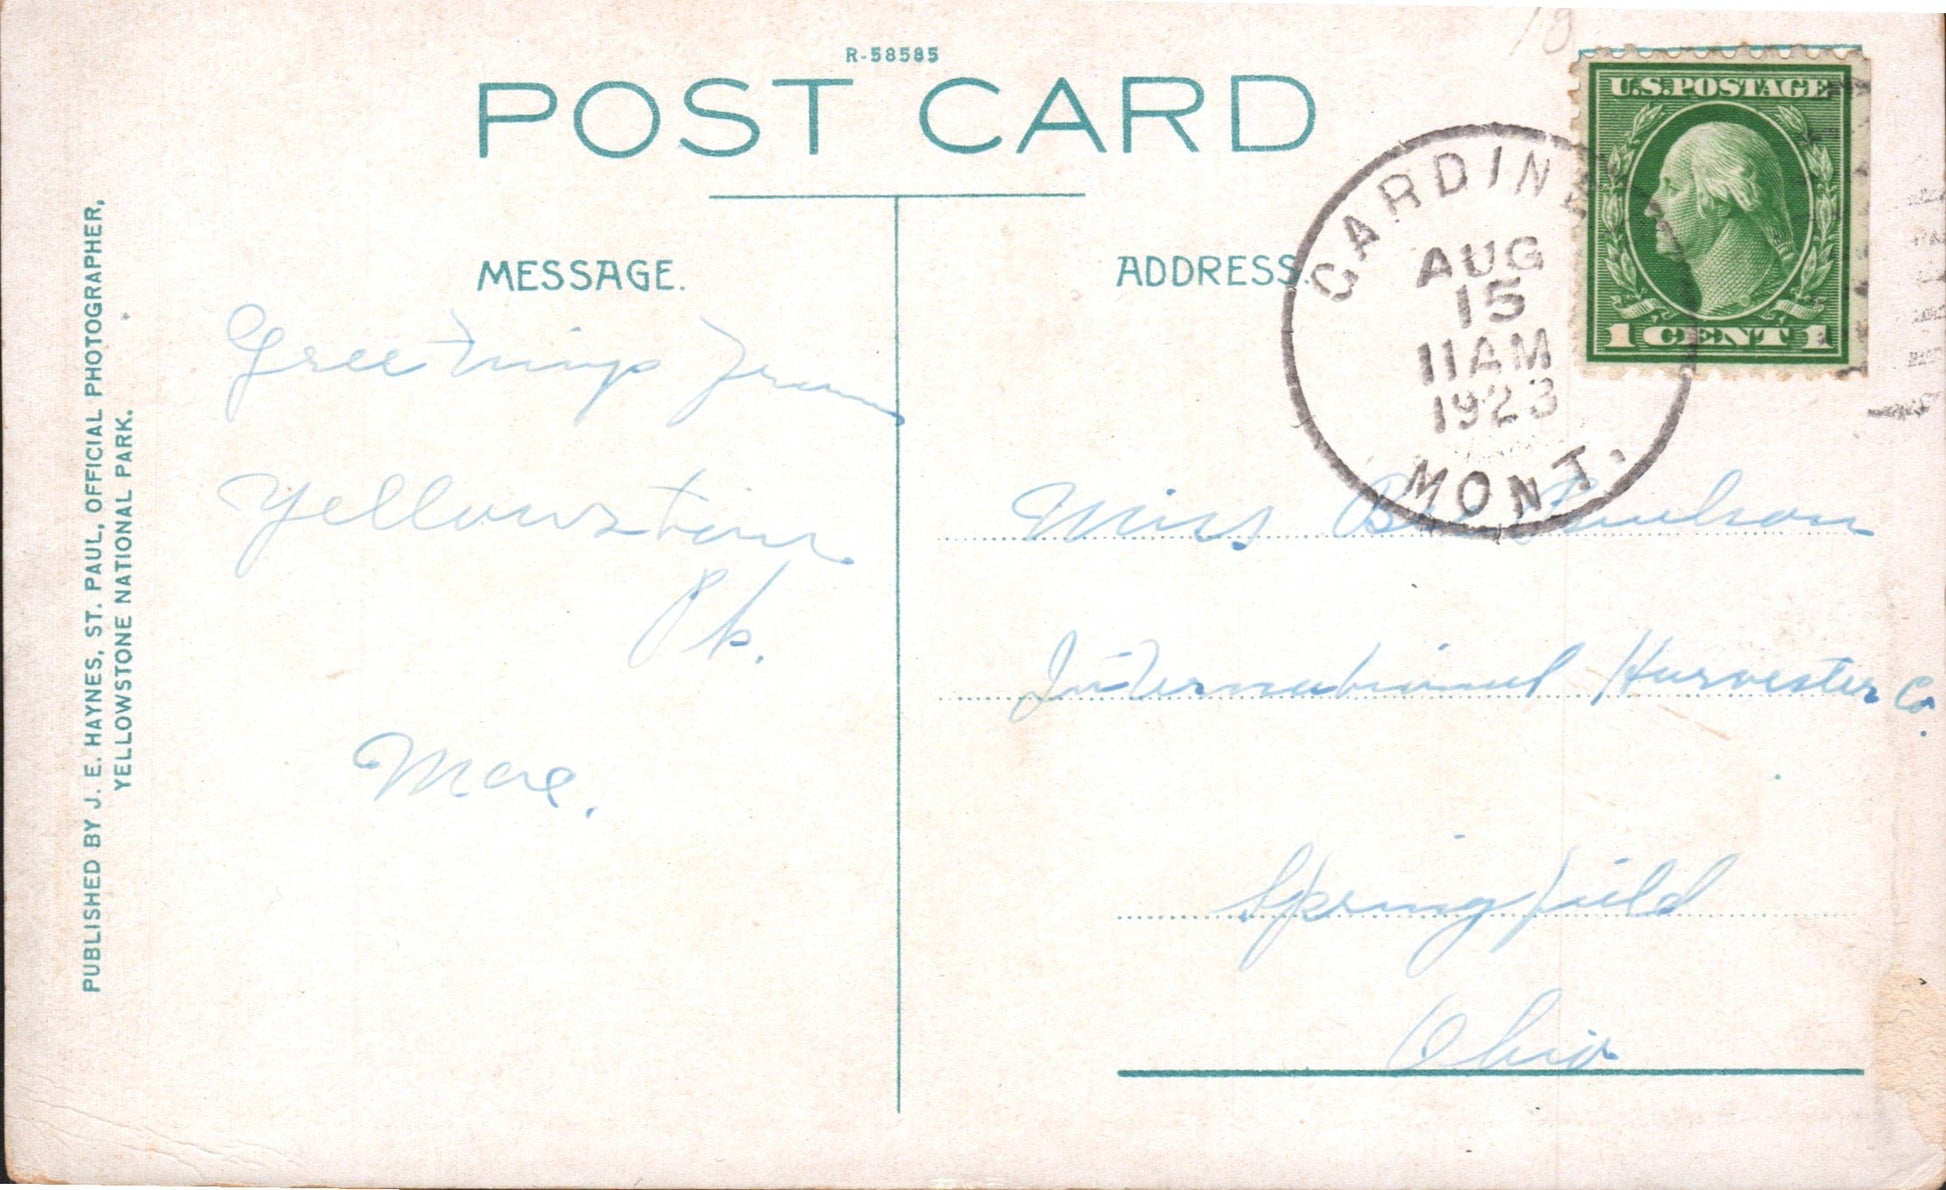 R-58585
POST CARD
U.S.POSTAGE
1 CENT 1
GARDINER
AUG
15
11AM
1923
MONT.
MESSAGE.
ADDRESS.
PUBLISHED BY J. E. HAYNES, ST. PAUL, OFFICIAL PHOTOGRAPHER,
YELLOWSTONE NATIONAL PARK.
Greetings from
Yellowstone
Pk.
Mae.
Miss Paulson
International Harvester Co.
Springfield
Ohio